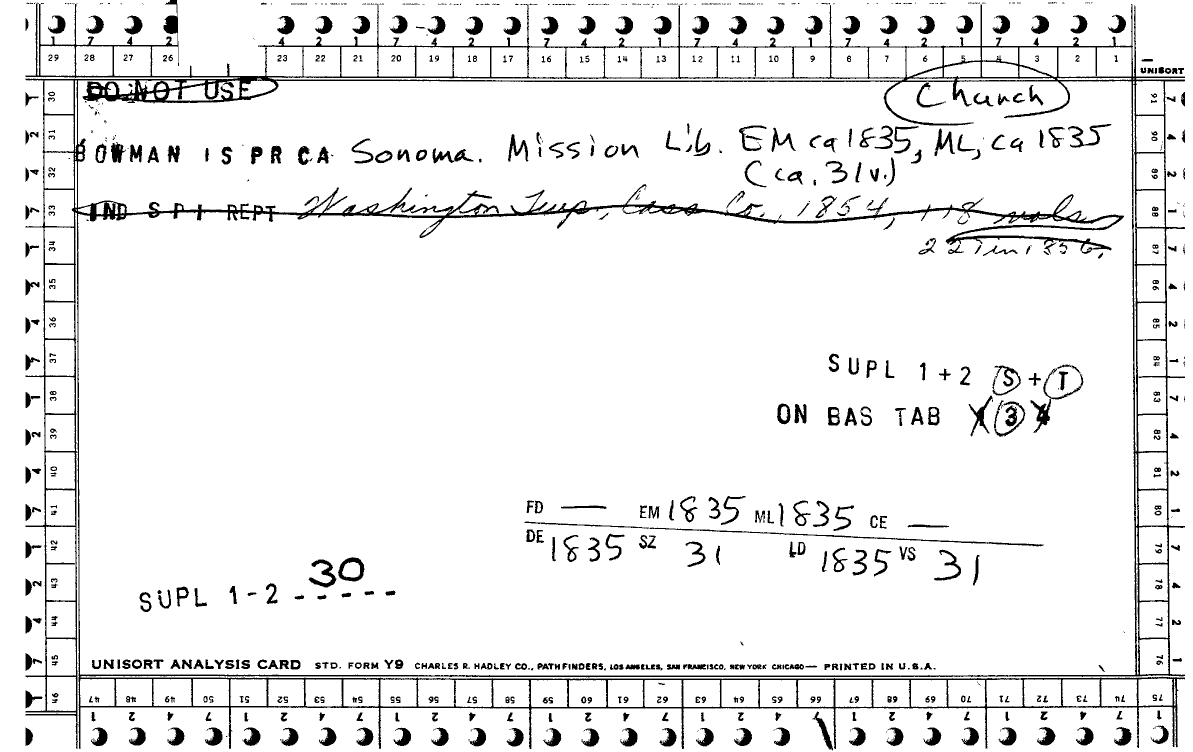 1 7 4 2 4 2 1 7 4 2 1 7 4 2 1 7 4 2 1 7 4 2 1 7 4 2 1
29 28 27 26 23 22 21 20 19 18 17 16 15 14 13 12 11 10 9 8 7 6 5 4 3 2 1
UNISORT
DO NOT USE
Church
BOWMAN IS PR CA Sonoma. Mission Lib. EM ca 1835, ML, ca 1835
(ca. 31v.)
IND S P I REPT Washington Twp., Cass Co., 1854, 118 vols
227 in 1856.
SUPL 1+2 S + T
ON BAS TAB 1 3 4
FD — EM 1835 ML 1835 CE —
DE 1835 SZ 31 LD 1835 VS 31
30
SUPL 1-2 - - - - -
UNISORT ANALYSIS CARD STD. FORM Y9 CHARLES R. HADLEY CO., PATHFINDERS, LOS ANGELES, SAN FRANCISCO, NEW YORK CHICAGO — PRINTED IN U.S.A.
47 48 49 50 51 52 53 54 55 56 57 58 59 60 61 62 63 64 65 66 67 68 69 70 71 72 73 74 75
1 2 4 7 1 2 4 7 1 2 4 7 1 2 4 7 1 2 4 7 1 2 4 7 1 2 4 7 1
30 31 32 33 34 35 36 37 38 39 40 41 42 43 44 45 46
91 90 89 88 87 86 85 84 83 82 81 80 79 78 77 76